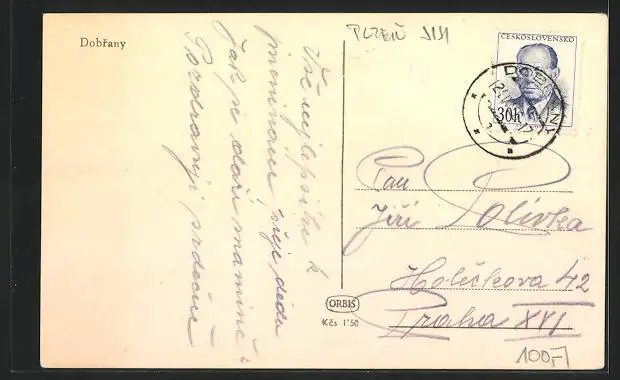 Dobřany
PLZEŇ JIH
ČESKOSLOVENSKO
30h
DOBŘANY
Vše nejlepšího k
jmeninám přeje děda
Jak se daří mamince?
Pozdravuji srdečně
Pan
Jiří Polívka
Holečkova 42
Praha XVI
ORBIS
Kčs 1'50
100,-